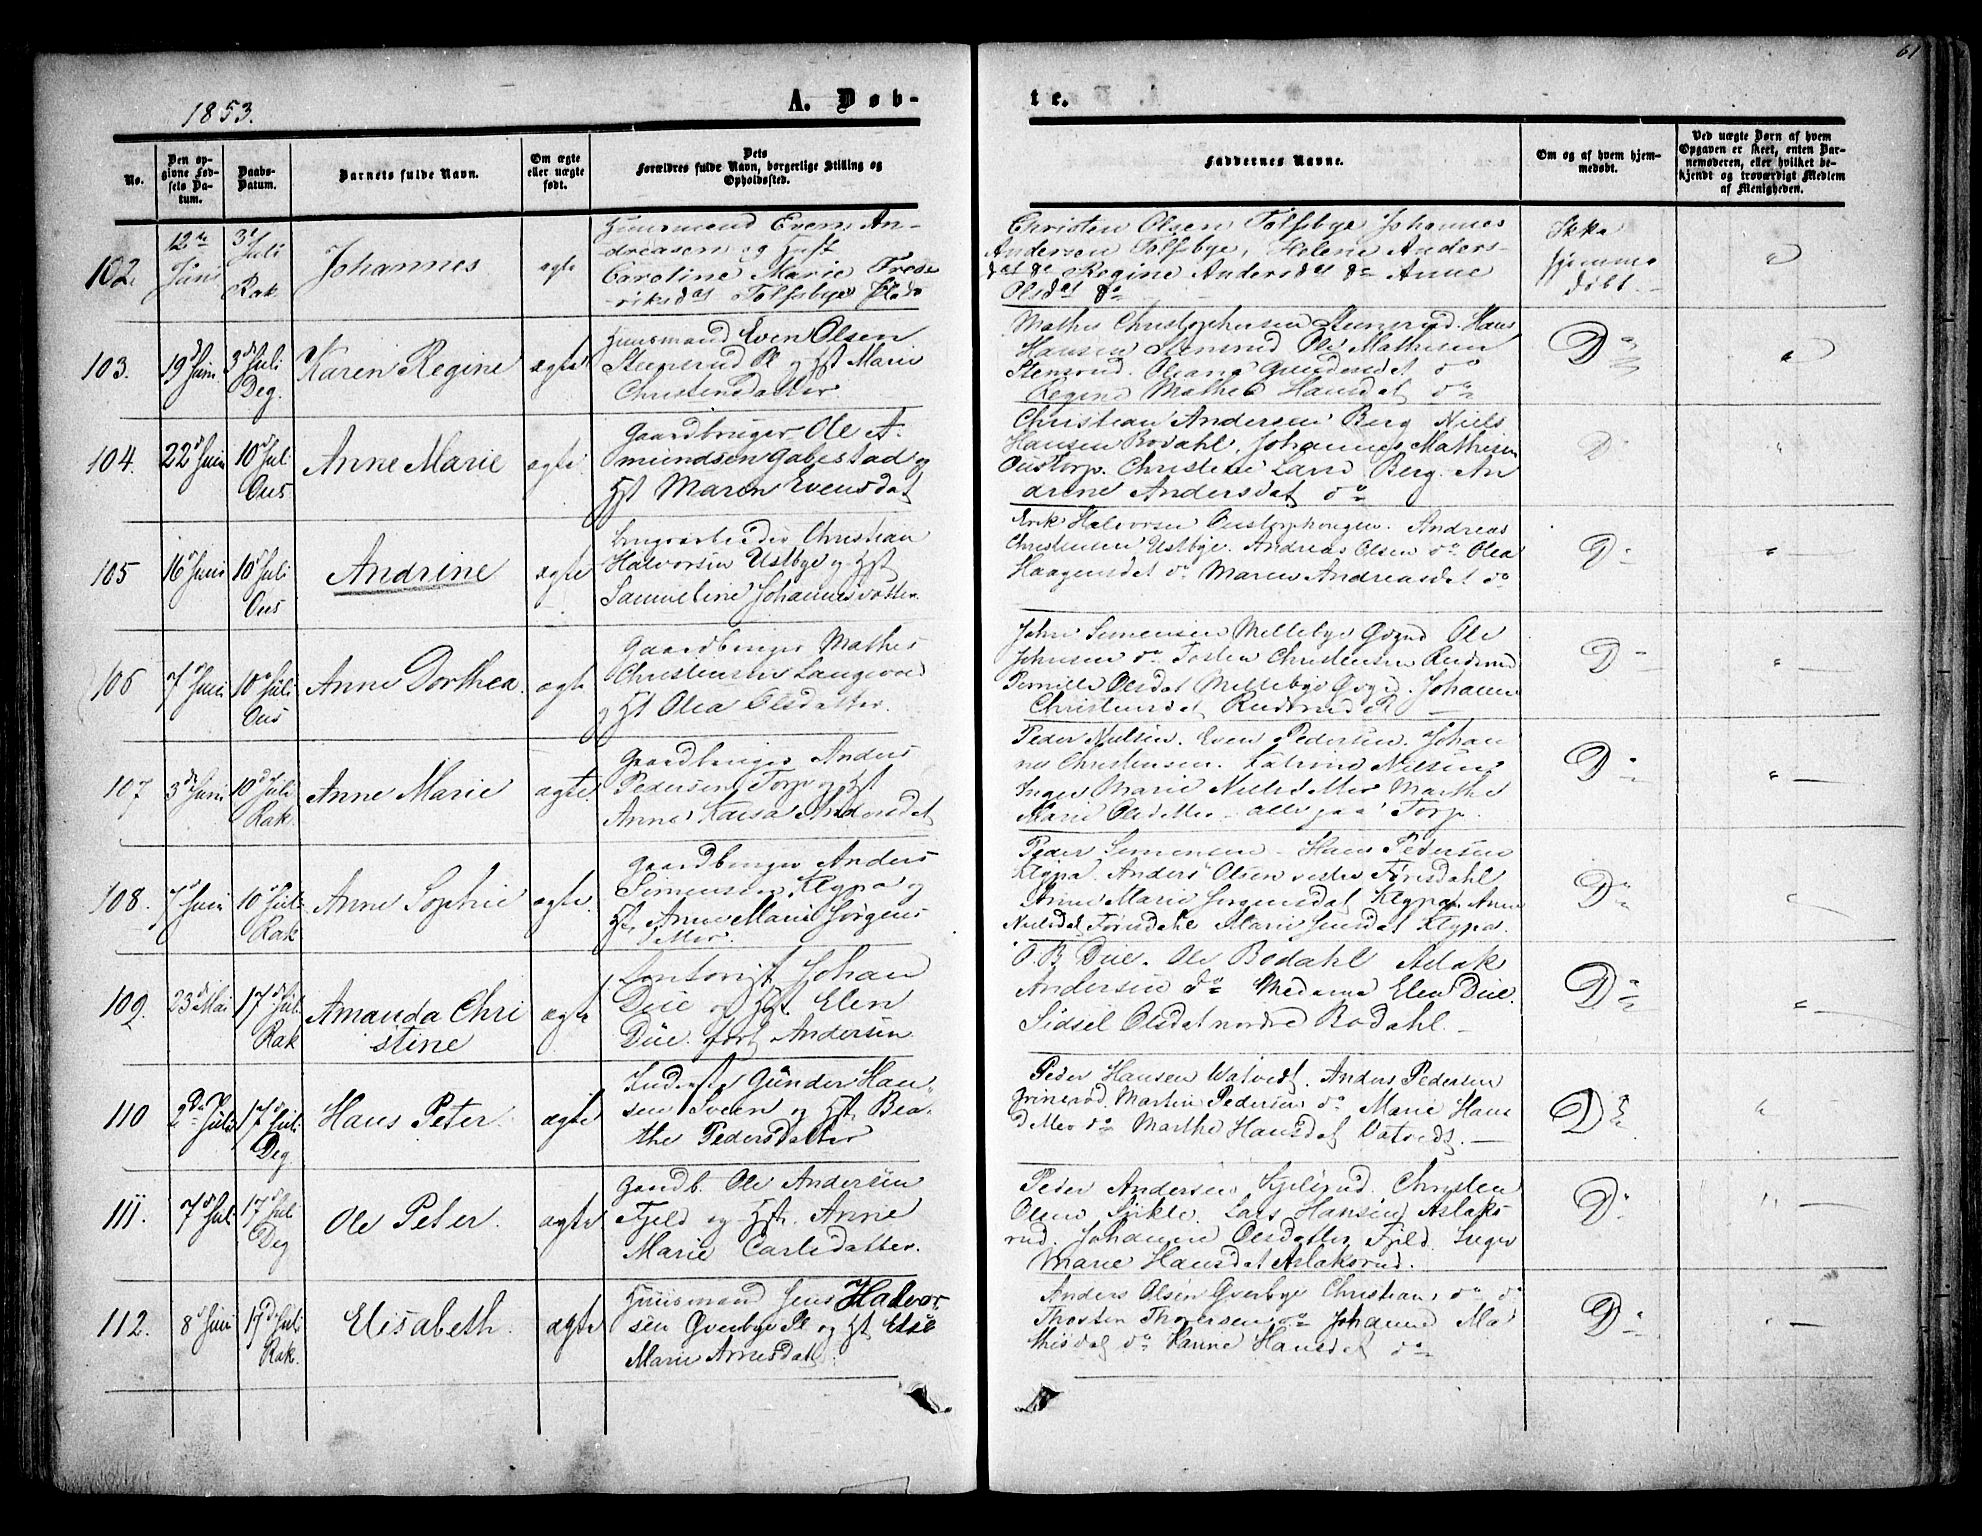 61
1853.
A. Døb-
te.
No.
Den op-
givne Fød-
sels Da-
tum.
Daabs-
Datum.
Barnets fulde Navn.
Om ægte
eller uægte
født.
Dets
Forældres fulde Navn, borgerlige Stilling og
Opholdssted.
Faddernes Navne.
Om og af hvem hjem-
medøbt.
Ved uægte Børn af hvem
Opgaven er skeet, enten Bar-
nemoderen, eller hvilket be-
kjendt og troværdigt Medlem
af Menigheden.
102.
12te
Juni
3d
Juli
Rak
Johannes
ægte
Huusmand Even An-
dreasen og Hust
Caroline Marie Frede
riksdat Tolfsbye
Christen Olsen Tolfsbye Johannes
Andersen Tolfsbye, Helene Anders-
dat do Regine Andersdat do Anne
Olsdat do
Ikke
hjemme
døbt
103.
19d Juni
3d Juli
Deg.
Karen Regine
ægte
Huusmand Even Olsen
Steensrud Pl og Hst Marie
Christensdatter
Mathis Christophersen Steensrud. Hans
Hansen Stensrud Ole Mathisen
Stensrud. Oleana Gundersdat do
Regine Mathea Hansdat do
Do
104.
22d Juni
10d Jul
Ous
Anne Marie
ægte
Gaardbruger Ole A-
mundsen Gabestad og
Hst Maren Evensdat
Christian Andersen Berg Niels
Hansen Bodahl, Johannes Mathisen
Oustorp. Christine Lard Berg. An
drine Andersdat do
D
105
16d Juni
10d Juli
Ous
Andrine
ægte
Brugsarbeider Christian
Halvorsen Ustbye og Hst
Samueline Johannesdatter
Erik Halvorsen Oustorphougen. Andreas
Christensen Ustbye. Andreas Olsen do Olea
Haagensdat do Maren Andreasdat do
Do
106
7d Juni
10d Juli
Ous
Anne Dorthea
ægte
Gaardbruger Mathis
Christensen Langerød
og Hst Olea Olsdatter.
John Simensen Mellebye Gogud Ole
Johnsen do Tosten Christensen Rudsrud
Pernille Olsdat Mellebye Johanne
Christensdat Rudsrud
Do
107
3d Juni
10d Juli
Rak.
Anne Marie
ægte
Gaardbruger Anders
Pedersen Torp og Hst
Anne Kaisa Andersdat
Peder Nielsen. Even Pedersen. Johan
nes Christensen. Katrine Nielsen
Inger Marie Nielsdatter Marthe
Marie Olsdatter alle paa Torp.
Do
108.
7d Juni
10d Juli
Rak
Anne Sophie
ægte
Gaardbruger Anders
Simensen Klypa og
Hst Anne Marie Jørgens
datter.
Peder Simensen Hans Pedersen
Klypa. Anders Olsen vestre Førisdahl
Anne Marie Jørgensdat Klypa Anne
Nielsdat Førisdahl Marie Jensdat Klypa.
Do
109.
23d Mai
17d Juli
Rak
Amanda Chri
stine
ægte
Contorist Johan
Düe og Hst Elen
Düe født Andersen
O. B Düe. Ole Bodahl Aslak
Andersen do Madame Elen Düe.
Sidsel Olsdat nordre Bodahl.
Do
110
2den Juli
17d Juli
Deg
Hans Peter
ægte
Inderst Günder Han-
sen Sveen og Hst Bea-
the Pedersdatter
Peder Hansen Vatvedt. Anders Pedersen
Grinerød. Martin Pedersen do Marie Hans
datter do Marthe Hansdat Vatvedt.
Do
111.
7d Jul
17d Jul
Deg
Ole Peter.
ægte
Gaardb. Ole Andersen
Fjeld og Hst. Anne
Marie Carlsdatter.
Peder Andersen Christen
Olsen Lars Hansen Aslaks
rud. Johanne Olsdatter Fjeld. Inger
Marie Hansdat Aslaksrud.
Do
112.
8d Juni
17d Juli
Rak.
Elisabeth.
ægte
Huusmand Jens Halvor
sen Gverbye Pl og Hst Elsie
Marie Arnesdat.
Anders Olsen Gverbye Christian do do
Thosten Thoresen do Johanne Ma
thisdat do Karine Hansdat do
Do